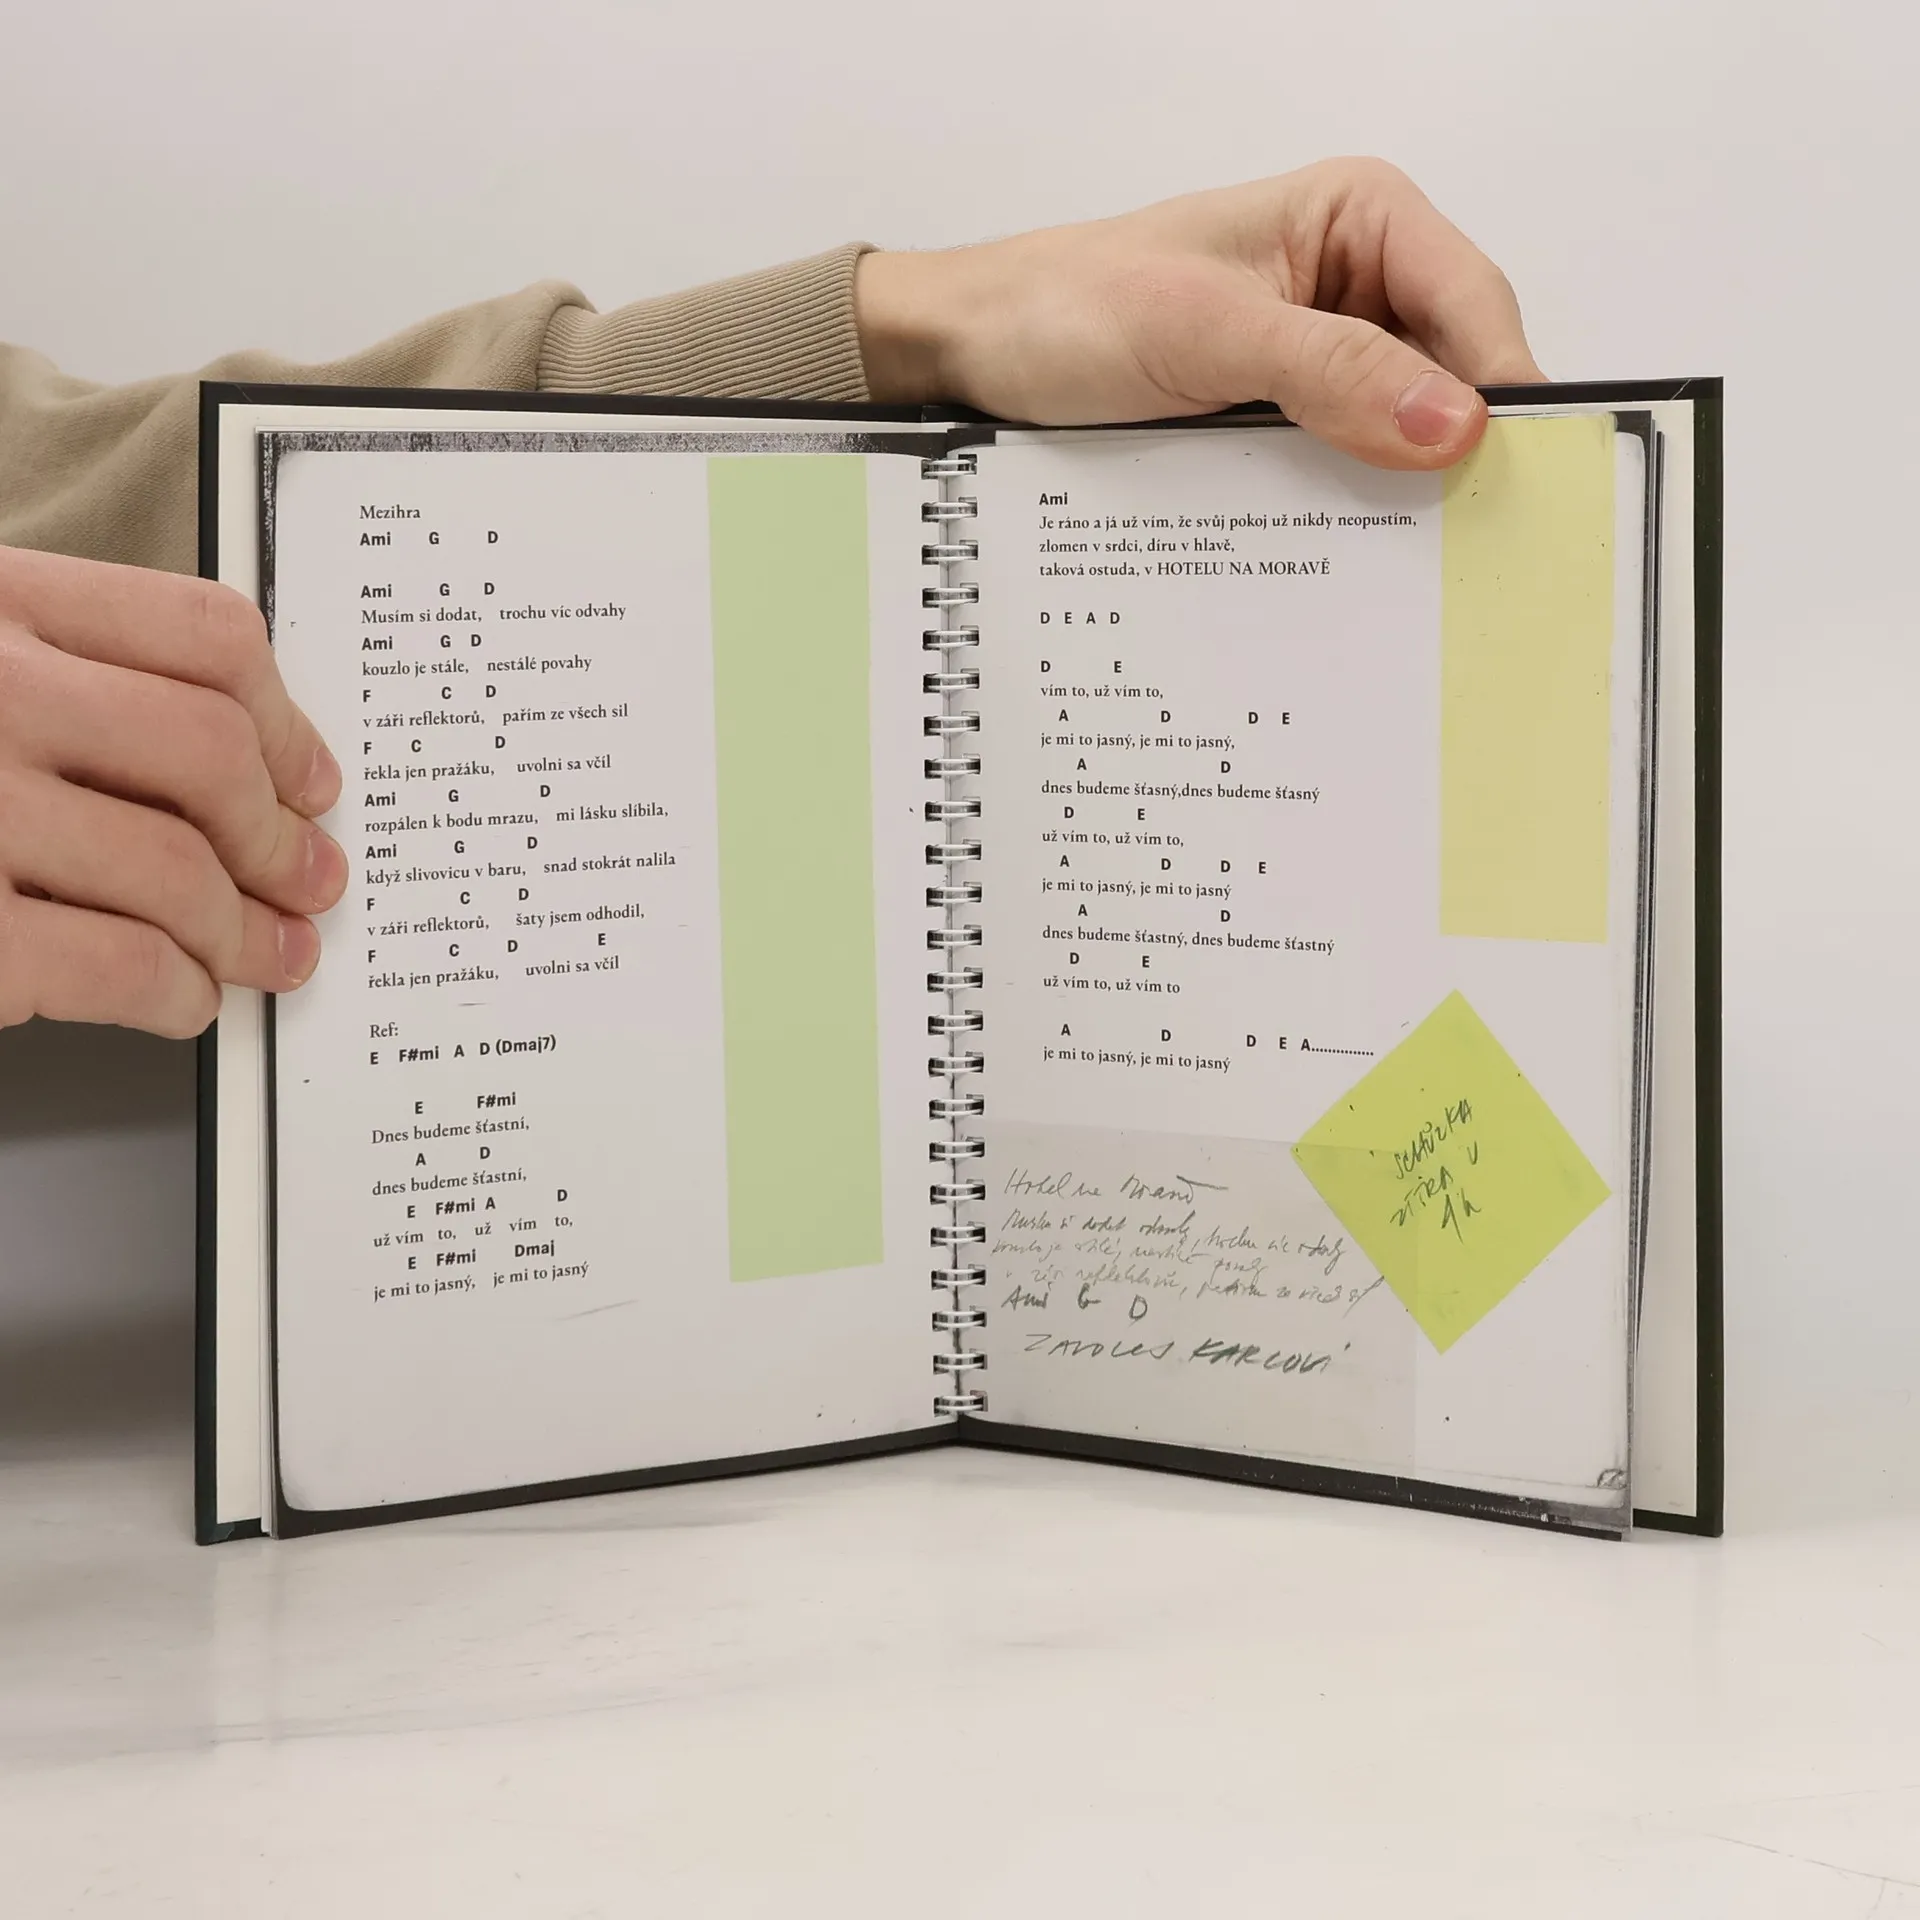 Mezihra
Ami G D
Ami G D
Musím si dodat, trochu víc odvahy
Ami G D
kouzlo je stále, nestálé povahy
F C D
v záři reflektorů, pařím ze všech sil
F C D
řekla jen pražáku, uvolni sa včíl
Ami G D
rozpálen k bodu mrazu, mi lásku slíbila,
Ami G D
když slivovicu v baru, snad stokrát nalila
F C D
v záři reflektorů, šaty jsem odhodil,
F C D E
řekla jen pražáku, uvolni sa včíl
Ref:
E F#mi A D (Dmaj7)
E F#mi
Dnes budeme šťastní,
A D
dnes budeme šťastní,
E F#mi A D
už vím to, už vím to,
E F#mi Dmaj
je mi to jasný, je mi to jasný
Ami
Je ráno a já už vím, že svůj pokoj už nikdy neopustím,
zlomen v srdci, díru v hlavě,
taková ostuda, v HOTELU NA MORAVĚ
D E A D
D E
vím to, už vím to,
A D D E
je mi to jasný, je mi to jasný,
A D
dnes budeme šťasný,dnes budeme šťasný
D E
už vím to, už vím to,
A D D E
je mi to jasný, je mi to jasný
A D
dnes budeme šťastný, dnes budeme šťastný
D E
už vím to, už vím to
A D D E A...............
je mi to jasný, je mi to jasný
SCHŮZKA
ZÍTRA V
Hotel na Moravě
v záři reflektorů,
Ami G D
KARLOVI